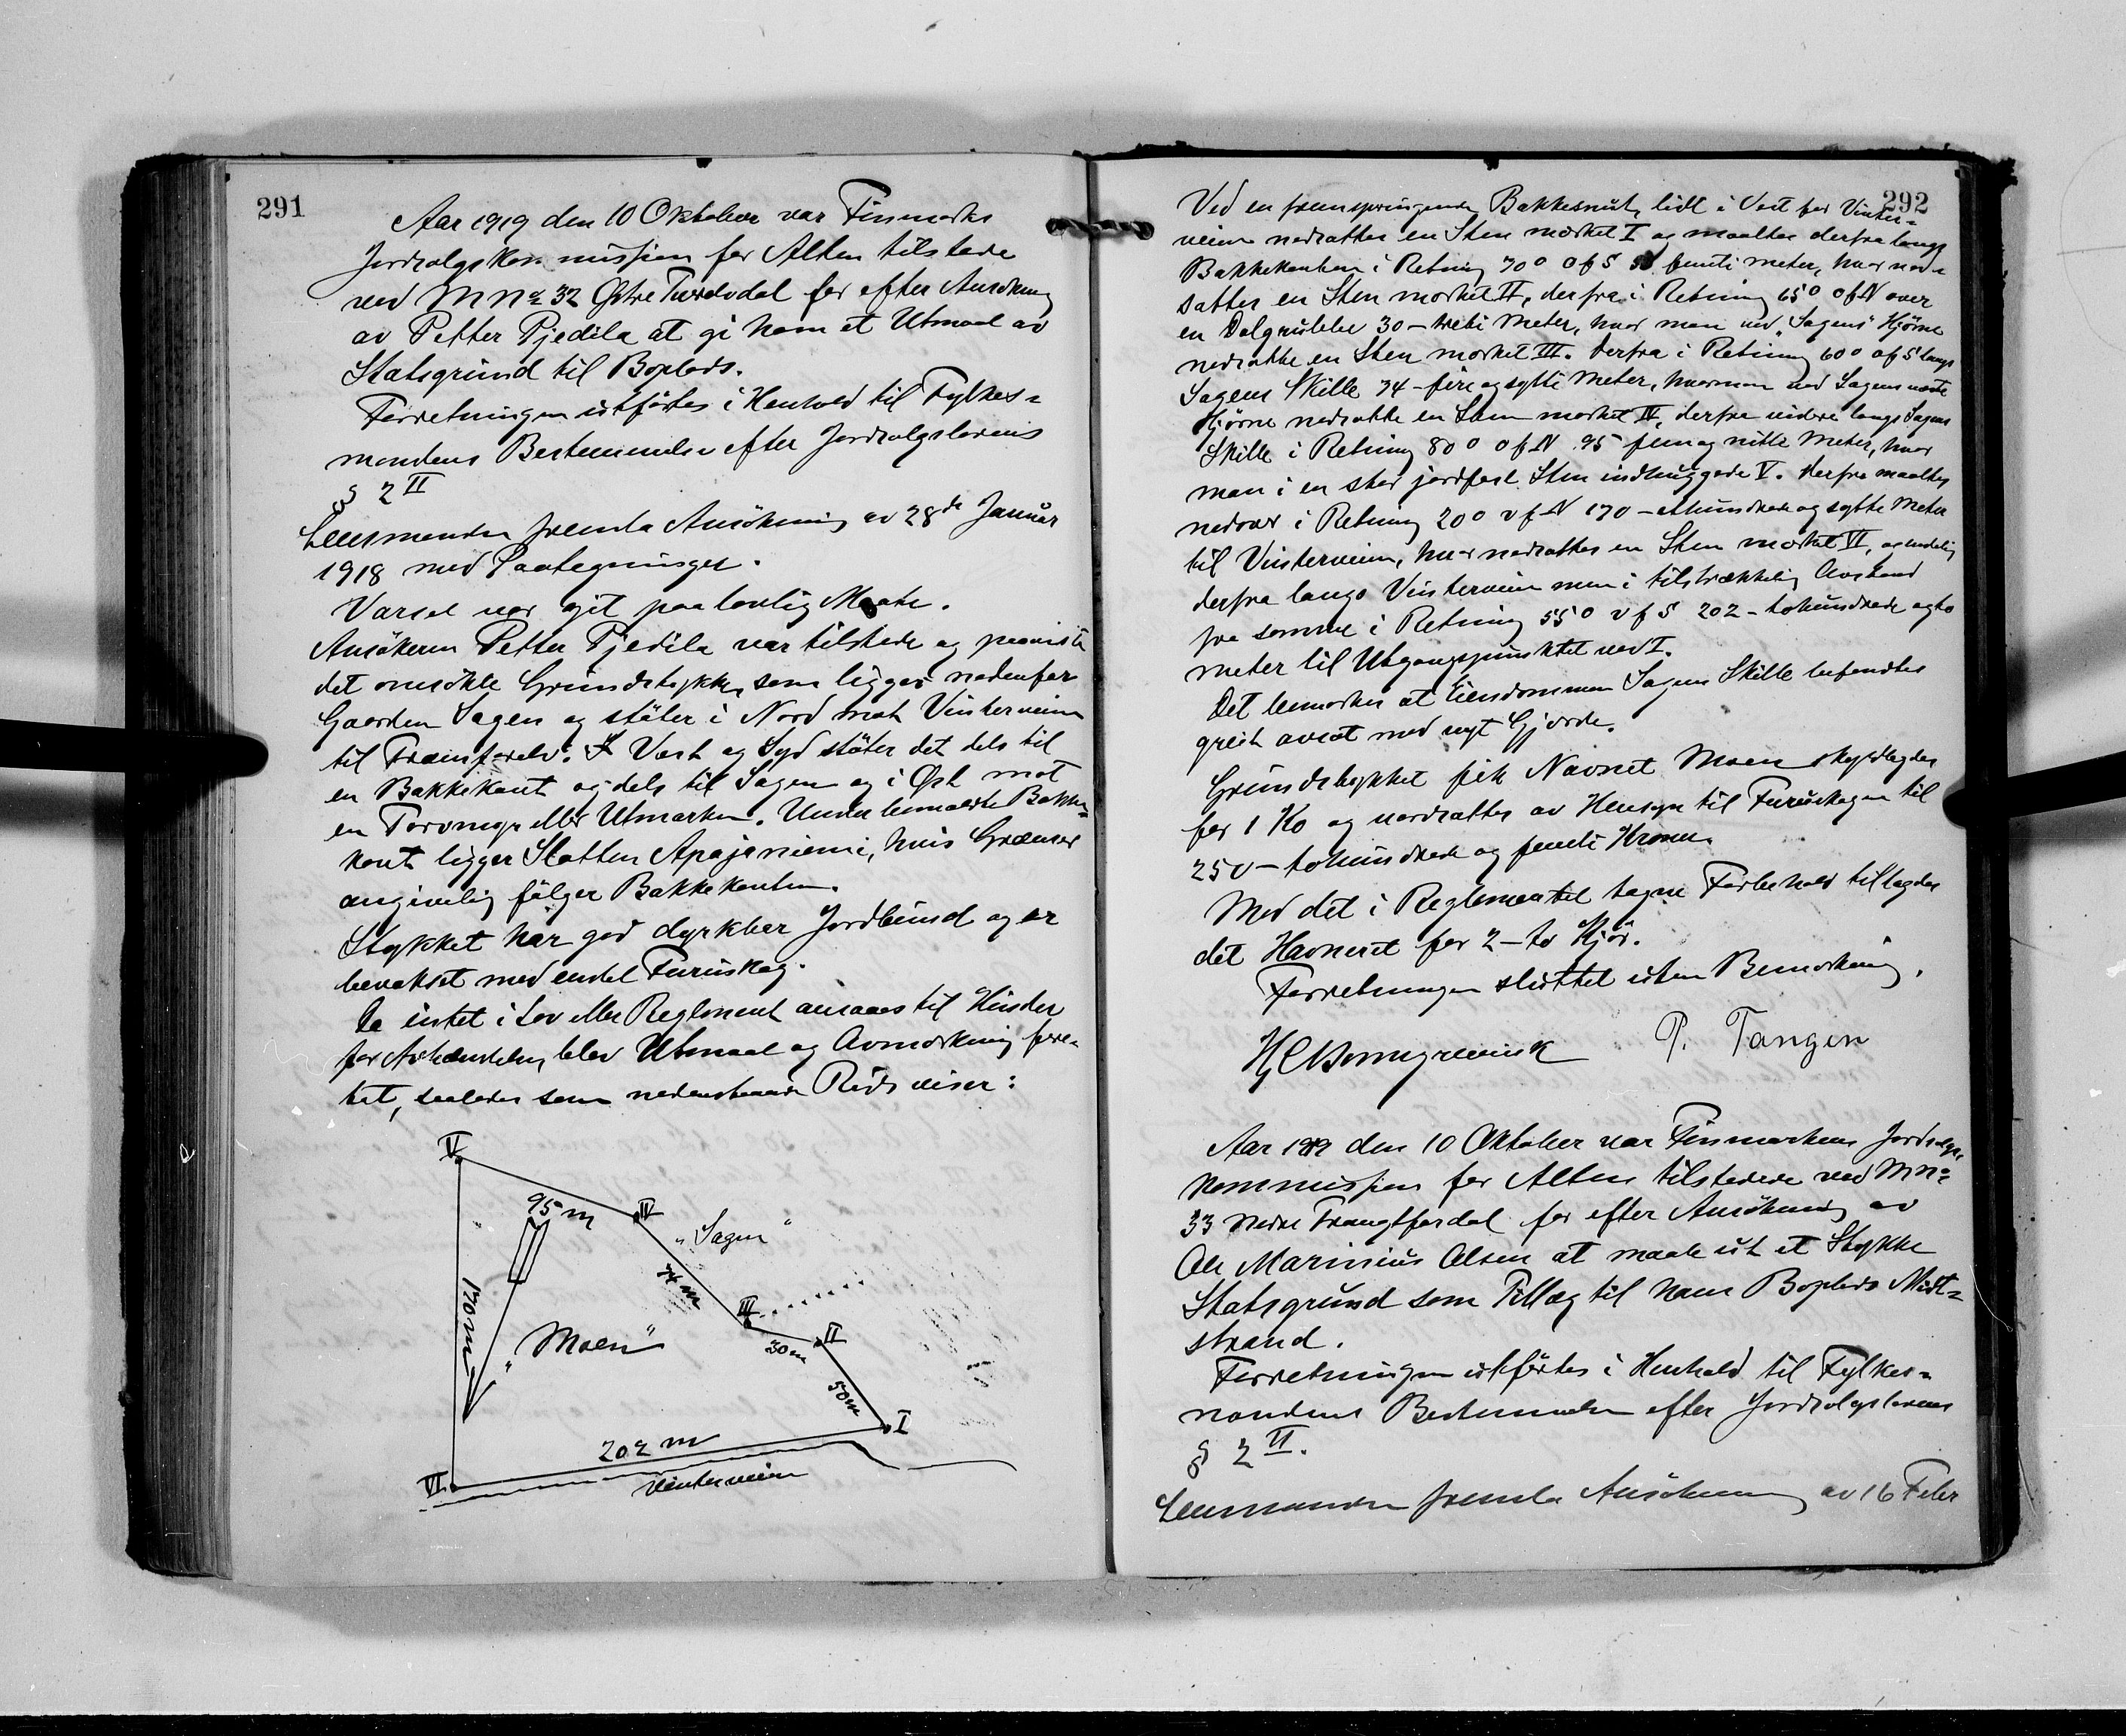 291
Aar 1919 den 10 Oktober var Finmarks
Jordsalgskommission for Alten tilstede
ved M No 32 Østre Tverelvdal for efter Ansökning
av Petter Pjedila at gi ham et Utmaal av
Statsgrund til Boplads.
Forretningen utförtes i Henhold til Fylkes-
mandens Bestemmelse efter Jordsalgslovens
§ 2 II
Lensmanden fremla Ansökning av 28de Januar
1918 med Paategninger.
Varsel var git paa lovlig Maate.
Ansökeren Petter Pjedila var tilstede og paaviste
det ansökte Grundstykke, som ligger nedenfor
Gaarden Sagen og stöter i Nord mot Vinterveien
til . I Vest og Syd stöter det dels til
en Bakkekant og dels til Sagen og i Øst mot
en Torvmyr eller Utmarken. Under bemeldte Bakke-
kant ligger Slotten Apajaniemi, hvis Grænser
angivelig fölger Bakkekanten.
Stykket har god dyrkbar Jordbund og er
bevokset med endel Furuskog.
Da intet i Lov eller Reglement ansaaes til Hinder
for Avhændelse, blev Utmaal og Avmerkning fore-
tat, saaledes som nedenstaaende Rids viser:
V
95 m
IV
"Sagen"
74 m
170 m
III
II
"Moen"
30 m
50 m
I
202 m
VI
Vinterveien
292
Ved en fremspringende Bakkesnut, lidt i Vest for Vinter-
veien nedsattes en Sten merket I og maaltes derfra langs
Bakkekanten i Retning 70° O f S 50 femti meter, hvor ned-
sattes en Sten merket II, derfra i Retning 65° O f N over
en Dalgrube 30 - treti Meter, hvor man ved "Sagens" Hjörne
nedsatte en Sten merket III. Derfra i Retning 60° O f S langs
Sagens Skille 74 - fire og sytti Meter, hvor man ved Sagens næste
Hjörne nedsatte en Sten merket IV, derfra videre langs Sagens
Skille i Retning 80° O f N 95 fem og nitti Meter, hvor
man i en stor jordfast Sten indhuggede V. Derfra maaltes
nedover i Retning 20° V f N 170 - ethundrede og sytti Meter
til Vinterveien, hvor nedsattes en Sten merket VI, og endelig
derfra langs Vinterveien men i tilstrækkelig Avstand
fra samme i Retning 55° V f S 202 - tohundrede og to
meter til Utgangspunktet ved I.
Det bemerkes at Eiendommen Sagens Skille befandtes
greit avsat med nyt Gjærde.
Grundstykket fik Navnet Moen skyldlagdes
for 1 Ko og værdsattes av Hensyn til Furuskogen til
250 - tohundrede og femti Kroner.
Med det i Reglementet tagne Forbehold tillagdes
det Havneret for 2 - to Kjör.
Forretningen sluttet uten Bemerkning.
P. Tangen
Aar 1919 den 10 Oktober var Finmarkens Jordsalgs-
kommission for Alten tilstede ved M No
33 Nedre for efter Ansökning av
Ole Marinius Olsen at maale ut et Stykke
Statsgrund som Tillæg til hans Boplads Midt-
strand.
Forretningen utförtes i Henhold til Fylkes-
mandens Bestemmelse efter Jordsalgslovens
§ 2 II.
Lensmanden fremla Ansökning av 16 Febr